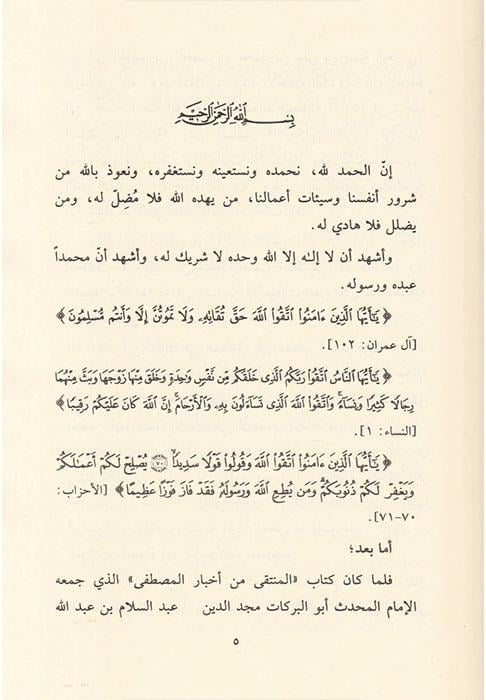 بسم الله الرحمن الرحيم
إنّ الحمد لله، نحمده ونستعينه ونستغفره، ونعوذ بالله من
شرور أنفسنا وسيئات أعمالنا، من يهده الله فلا مُضِلّ له، ومن
يضلل فلا هادي له.
وأشهد أن لا إلٰه إلا الله وحده لا شريك له، وأشهد أنّ محمداً
عبده ورسوله.
﴿ يَٰٓأَيُّهَا ٱلَّذِينَ ءَامَنُوا۟ ٱتَّقُوا۟ ٱللَّهَ حَقَّ تُقَاتِهِۦ وَلَا تَمُوتُنَّ إِلَّا وَأَنتُم مُّسْلِمُونَ ﴾
[آل عمران: ١٠٢].
﴿ يَٰٓأَيُّهَا ٱلنَّاسُ ٱتَّقُوا۟ رَبَّكُمُ ٱلَّذِى خَلَقَكُم مِّن نَّفْسٍ وَٰحِدَةٍ وَخَلَقَ مِنْهَا زَوْجَهَا وَبَثَّ مِنْهُمَا
رِجَالًا كَثِيرًا وَنِسَآءً ۚ وَٱتَّقُوا۟ ٱللَّهَ ٱلَّذِى تَسَآءَلُونَ بِهِۦ وَٱلْأَرْحَامَ ۚ إِنَّ ٱللَّهَ كَانَ عَلَيْكُمْ رَقِيبًا ﴾
[النساء: ١].
﴿ يَٰٓأَيُّهَا ٱلَّذِينَ ءَامَنُوا۟ ٱتَّقُوا۟ ٱللَّهَ وَقُولُوا۟ قَوْلًا سَدِيدًا ۝٧٠ يُصْلِحْ لَكُمْ أَعْمَٰلَكُمْ
وَيَغْفِرْ لَكُمْ ذُنُوبَكُمْ ۗ وَمَن يُطِعِ ٱللَّهَ وَرَسُولَهُۥ فَقَدْ فَازَ فَوْزًا عَظِيمًا ﴾ [الأحزاب:
٧٠-٧١].
أما بعد؛
فلما كان كتاب «المنتقى من أخبار المصطفى» الذي جمعه
الإمام المحدث أبو البركات مجد الدين عبد السلام بن عبد الله
٥